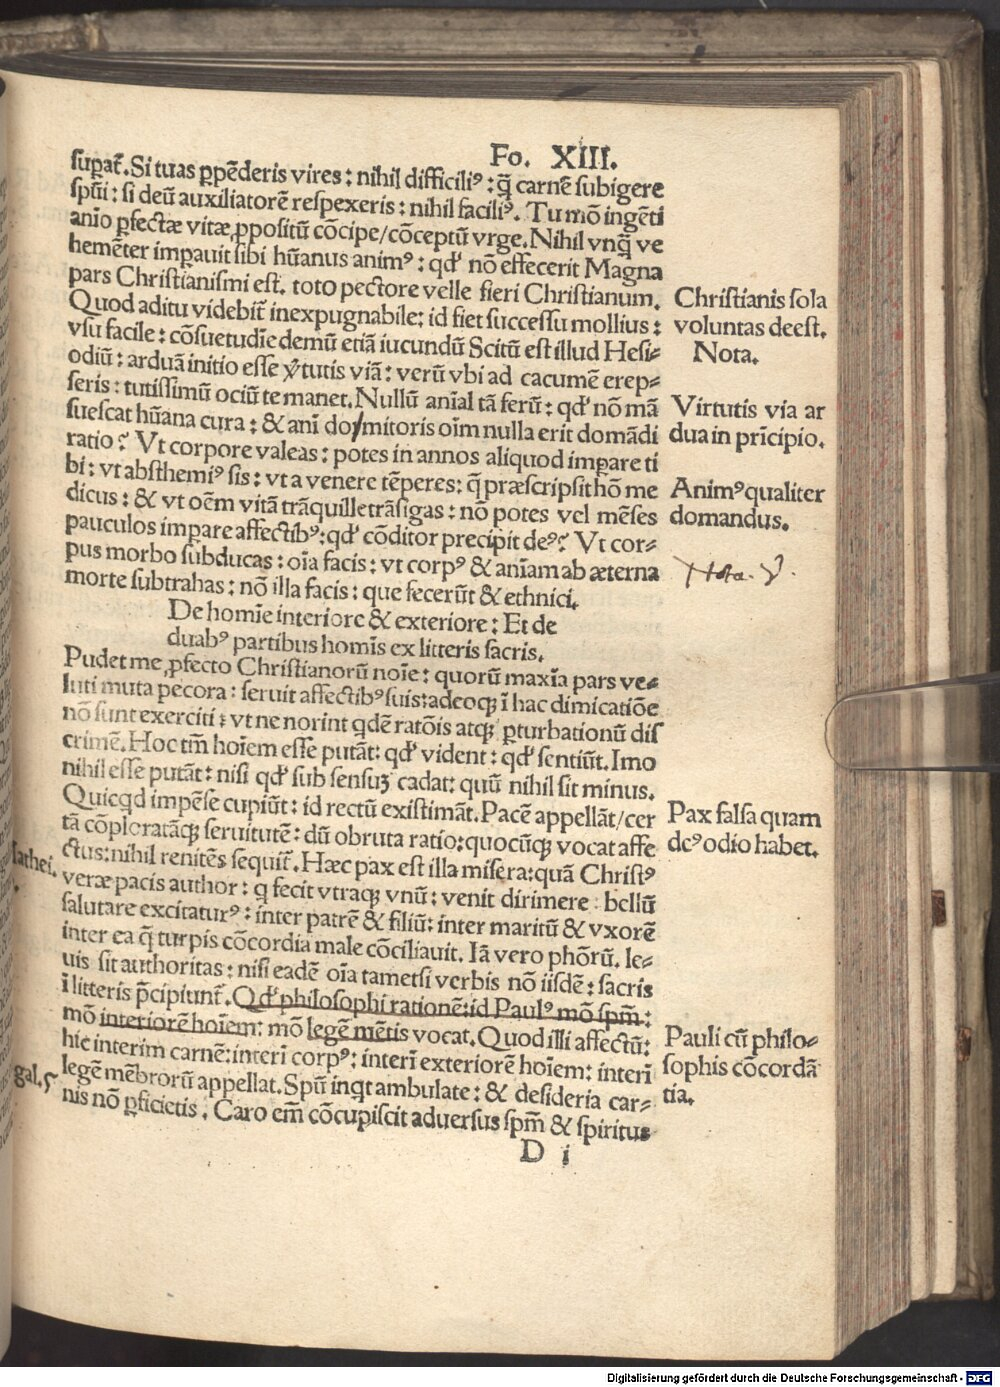 Fo. XIII.
suꝑat̃. Si tuas ꝑpẽderis vires: nihil difficiliꝰ: q̃ carnẽ subigere
spũi: si deũ auxiliatorẽ respexeris: nihil faciliꝰ. Tu mõ ingẽti
anĩo ꝑfectæ vitæ ꝓpositũ cõcipe/cõceptũ vrge. Nihil vnq̃ ve
hemẽter imꝑauit sibi hũanus animꝰ: qď nõ effecerit Magna
pars Christianismi est. toto pectore velle fieri Christianum.
Quod aditu videbit̃ inexpugnabile: id fiet successu mollius:
vsu facile: cõsuetudĩe demũ etiã iucundũ Scitũ est illud Hesi-
odiũ: arduã initio esse v̾tutis viã: verũ vbi ad cacumẽ erep-
seris: tutissimũ ociũ te manet. Nullũ anĩal tã ferũ: qď nõ mã
suescat hũana cura: & anĩ domitoris oĩm nulla erit domãdi
ratio? Vt corpore valeas: potes in annos aliquod imꝑare ti
bi: vt absthemiꝰ sis: vt a venere tẽperes: q̃ præscripsit hõ me
dicus: & vt oẽm vitã trãquille trãsigas: nõ potes vel mẽses
pauculos imꝑare affectibꝰ: qď cõditor precipit deꝰ? Vt cor-
pus morbo subducas: oĩa facis: vt corpꝰ & anĩam ab æterna
morte subtrahas: nõ illa facis: que fecerũt & ethnici.
De homĩe interiore & exteriore: Et de
duabꝰ partibus homĩs ex litteris sacris.
Pudet me ꝓfecto Christianorũ noĩe: quorũ maxĩa pars ve-
luti muta pecora: seruit affectibꝰ suis: adeoqꝫ ĩ hac dimicatiõe
nõ sunt exerciti: vt ne norint qdẽ ratõis atqꝫ ꝑturbationũ dis
crimẽ. Hoc tm̃ hoĩem esse putãt: qď vident: qď sentiũt. Imo
nihil esse putãt: nisi qď sub sensuꝫ cadat: quũ nihil sit minus.
Quicqd impẽse cupiũt: id rectũ existimãt. Pacẽ appellãt/cer
tã cõploratãqꝫ seruitutẽ: dũ obruta ratio: quocũqꝫ vocat affe
ctus: nihil renitẽs sequit̃. Hæc pax est illa misera: quã Christꝰ
veræ pacis author: q fecit vtraqꝫ vnũ: venit dirimere: bellũ
salutare excitaturꝰ: inter patrẽ & filiũ: inter maritũ & vxorẽ
inter ea q̃ turpis cõcordia male cõciliauit. Iã vero phõrũ. le-
uis sit authoritas: nisi eadẽ oĩa tametsi verbis nõ iisdẽ: sacris
ĩ litteris p̃cipiunt̃. Qď philosophi rationẽ: id Paulꝰ mõ spm̃:
mõ interiorẽ hoĩem: mõ legẽ mẽtis vocat. Quod illi affectũ:
hic interim carnẽ: interĩ corpꝰ: interĩ exteriorẽ hoĩem: interĩ
legẽ mẽbrorũ appellat. Spũ inqt ambulate: & desideria car-
nis nõ ꝑficietis. Caro em̃ cõcupiscit aduersus spm̃ & spiritus
D i
Christianis sola
voluntas deest.
Nota.
Virtutis via ar
dua in prĩcipio.
Animꝰ qualiter
domandus.
Nota.
Pax falsa quam
deꝰ odio habet.
Pauli cũ philo-
sophis cõcordã
tia.
gal. 5
Digitalisierung gefördert durch die Deutsche Forschungsgemeinschaft - DFG